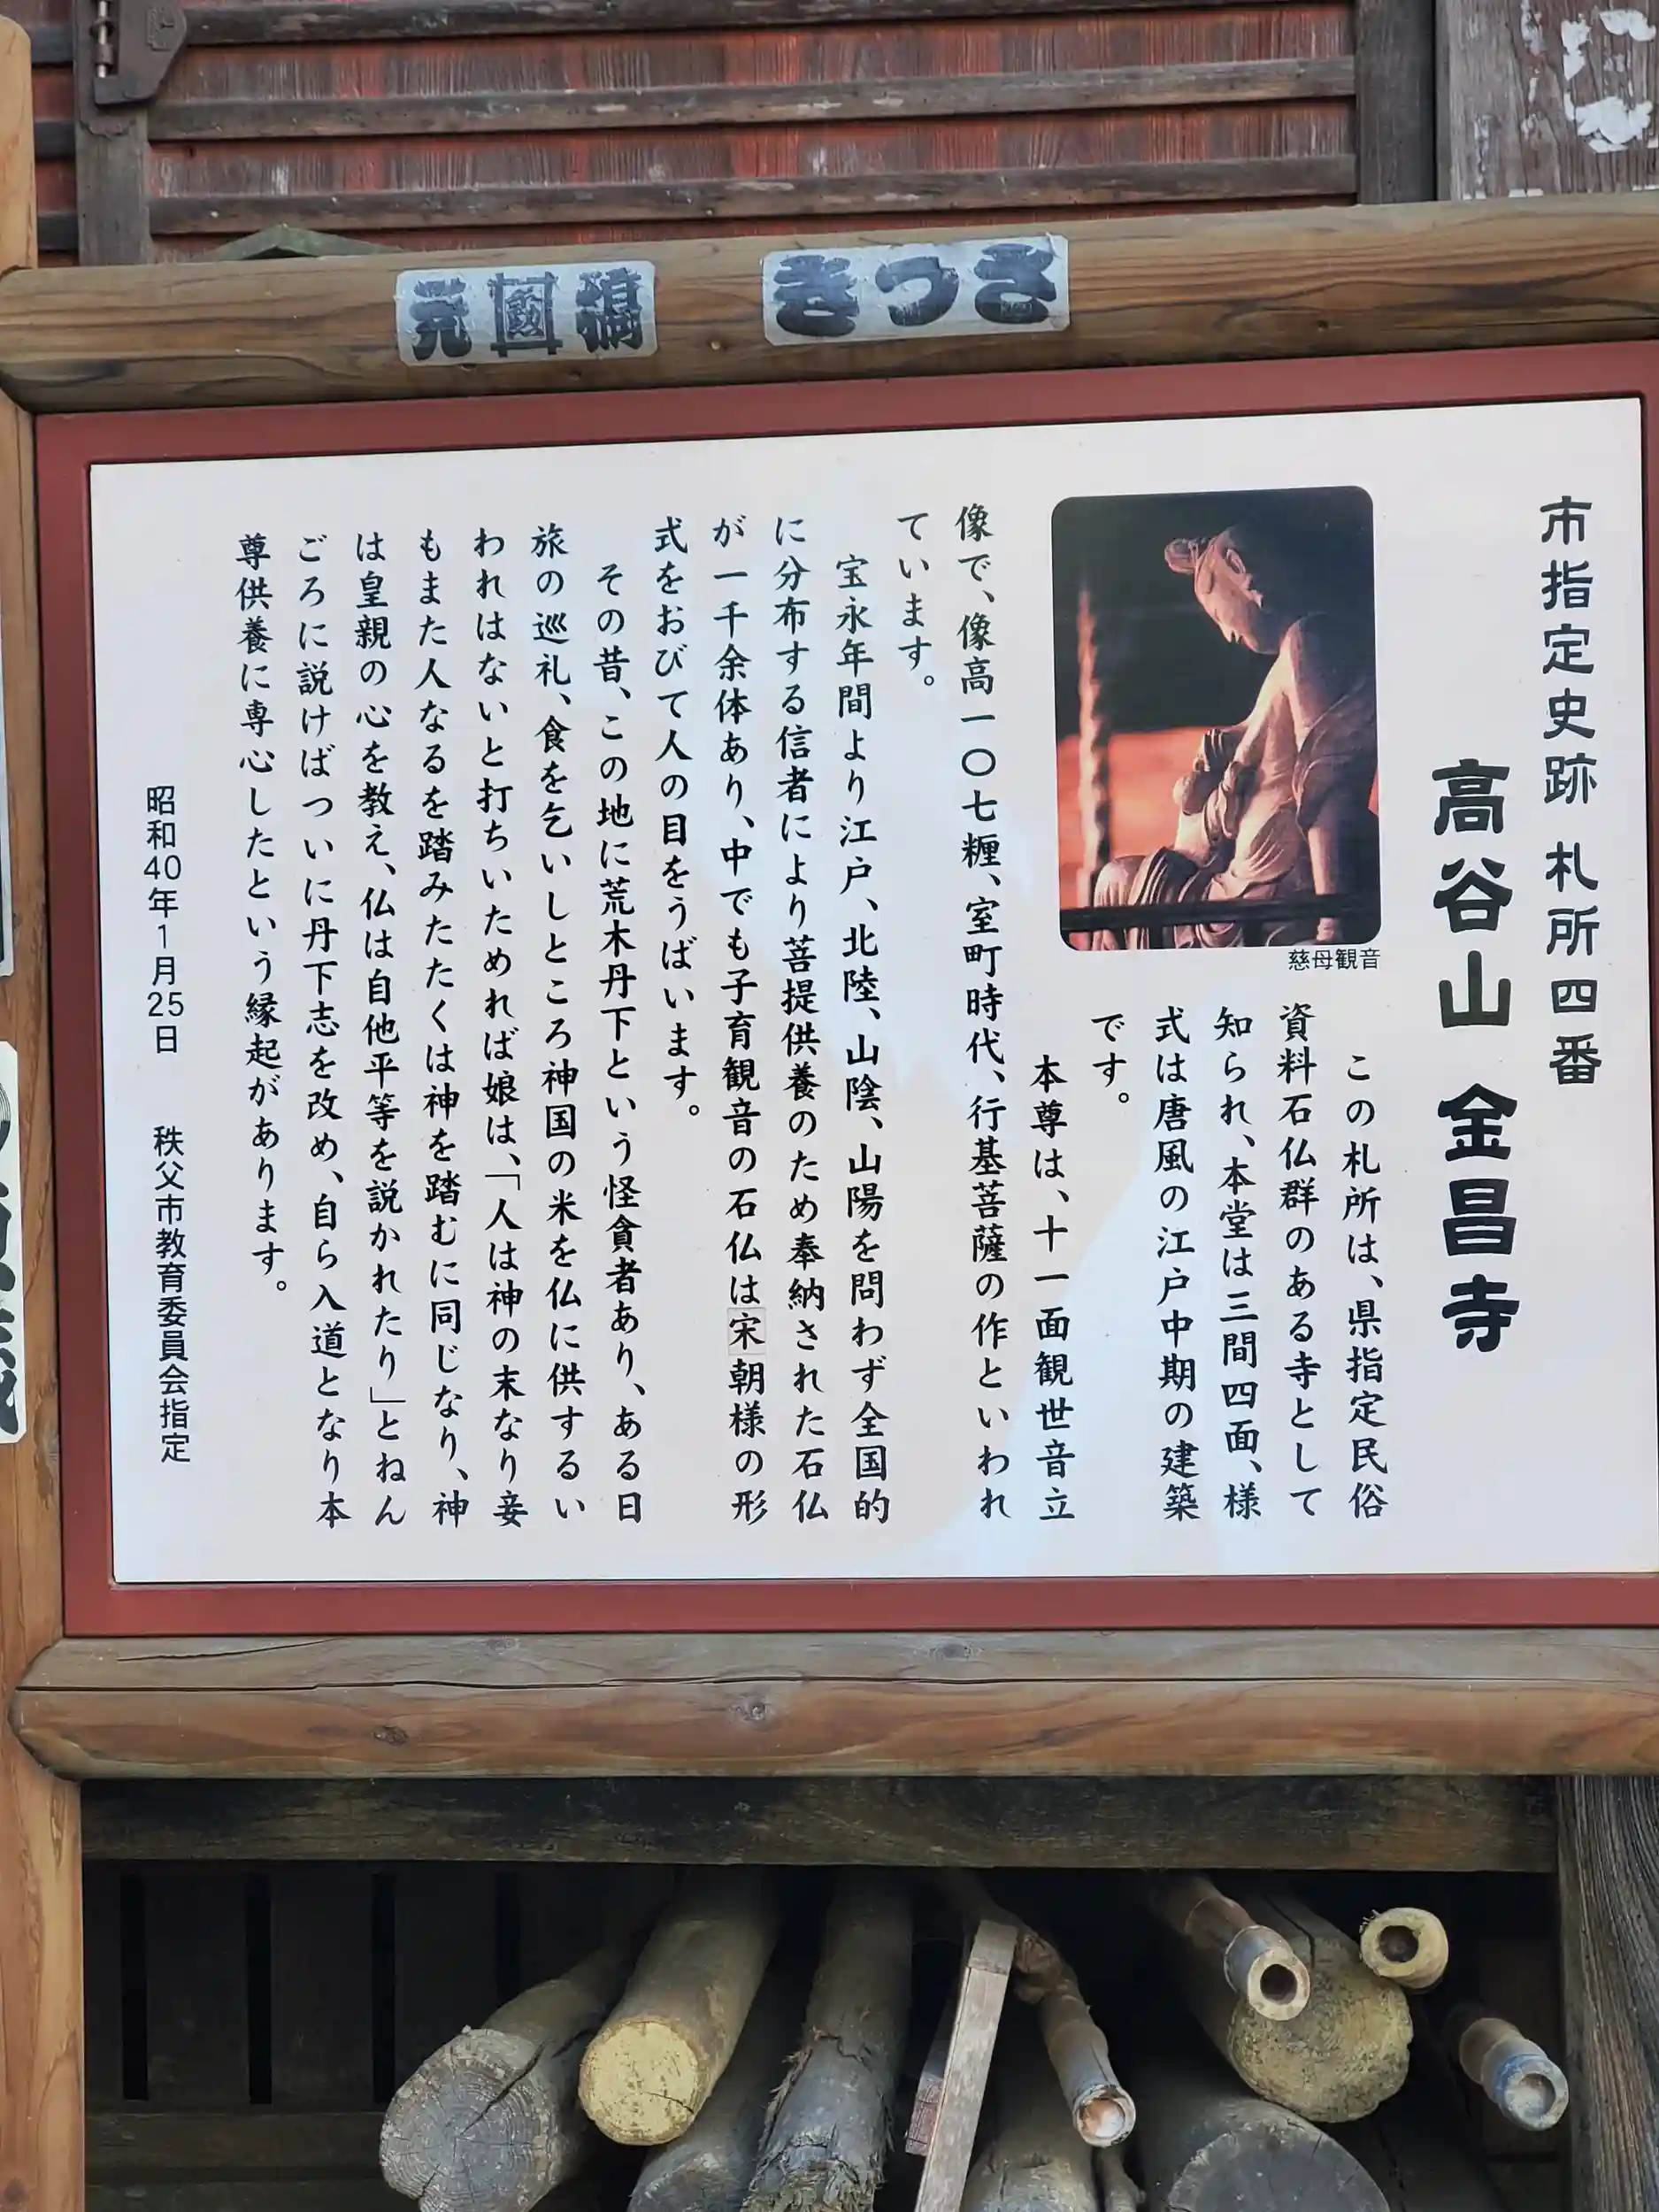 市指定史跡 札所四番
高谷山 金昌寺
この札所は、県指定民俗
資料石仏群のある寺として
知られ、本堂は三間四面、様
式は唐風の江戸中期の建築
です。
本尊は、十一面観世音立
像で、像高一〇七糎、室町時代、行基菩薩の作といわれ
ています。
宝永年間より江戸、北陸、山陰、山陽を問わず全国的
に分布する信者により菩提供養のため奉納された石仏
が一千余体あり、中でも子育観音の石仏は宋朝様の形
式をおびて人の目をうばいます。
その昔、この地に荒木丹下という怪貪者あり、ある日
旅の巡礼、食を乞いしところ神国の米を仏に供するい
われはないと打ちいためれば娘は、「人は神の末なり妾
もまた人なるを踏みたたくは神を踏むに同じなり、神
は皇親の心を教え、仏は自他平等を説かれたり」とねん
ごろに説けばついに丹下志を改め、自ら入道となり本
尊供養に専心したという縁起があります。
昭和40年1月25日 秩父市教育委員会指定
慈母観音
きつさ
元